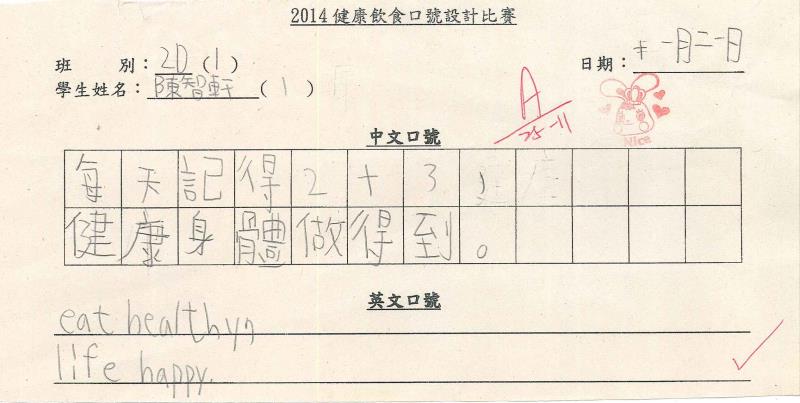 2014健康飲食口號設計比賽
班 別：2D (1)
日期：十一月二一日
學生姓名：陳智軒 (1)
A
25-11
Nice
中文口號
每天記得2+3，
健康身體做得到。
英文口號
eat healthy,
life happy.